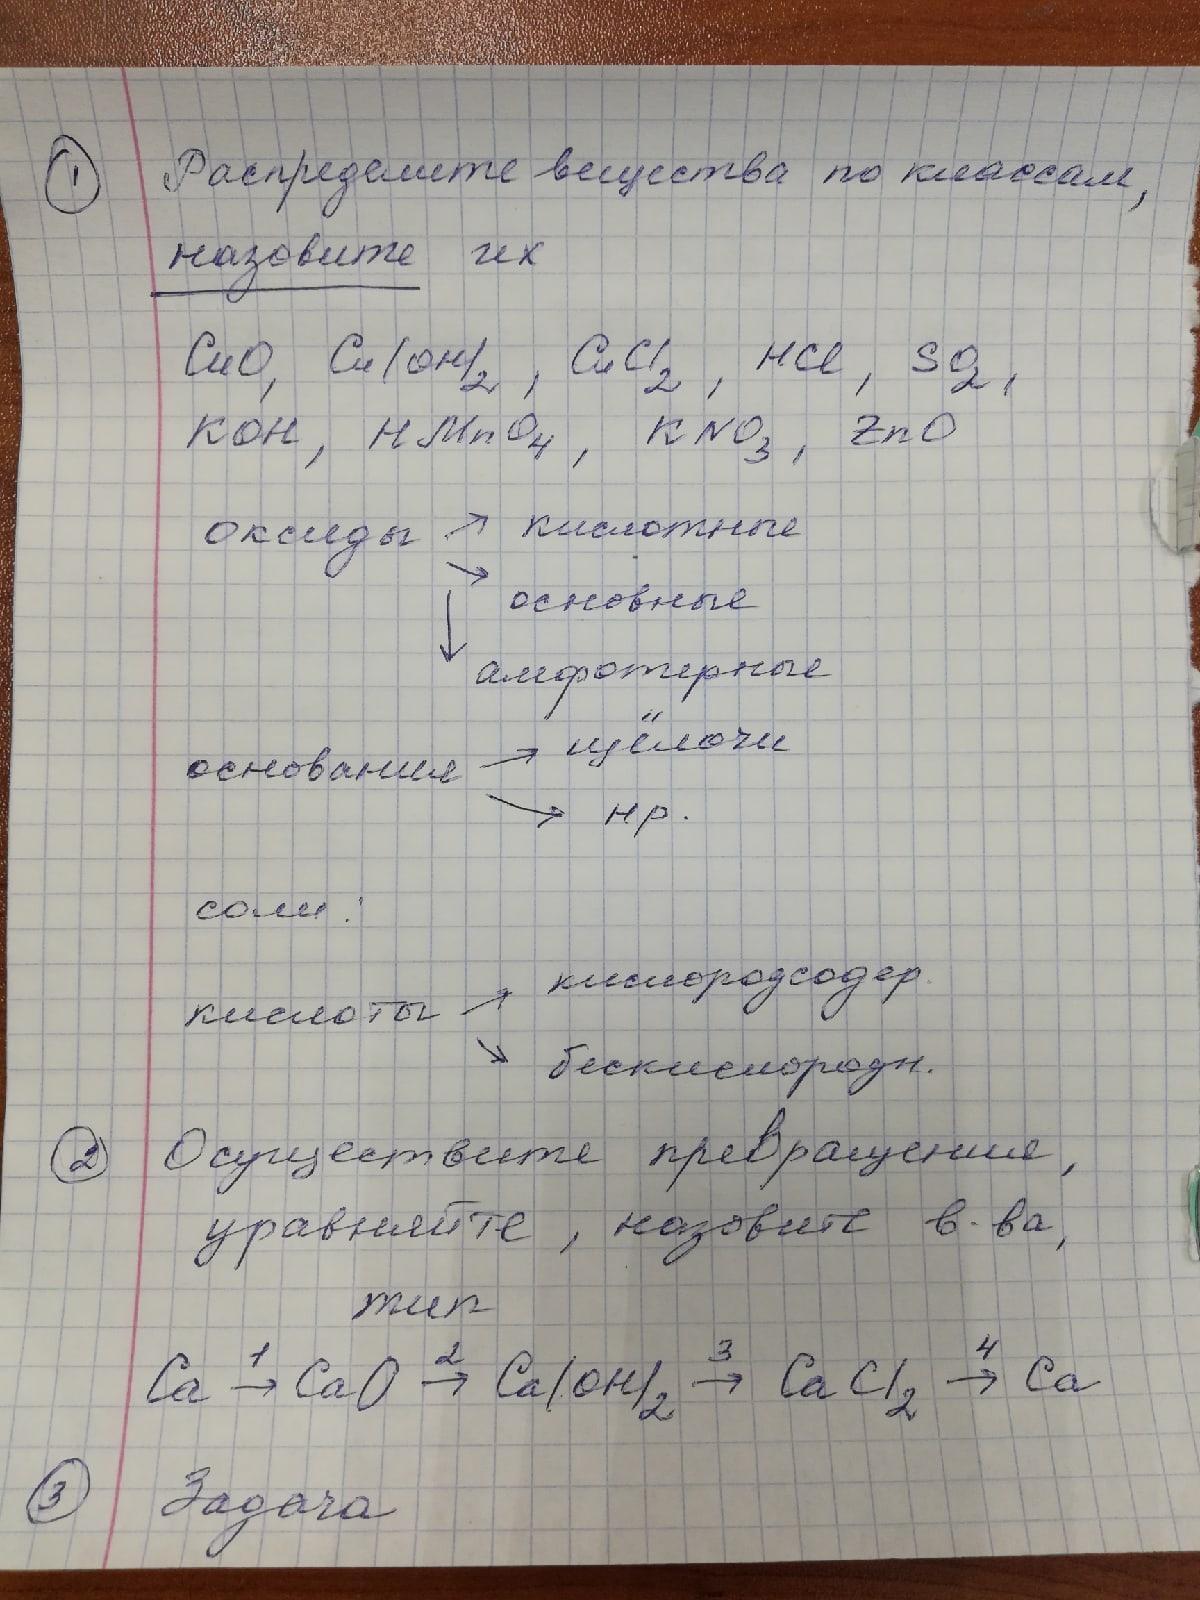 ① Распределите вещества по классам,
назовите их
CuO, Cu(OH)₂, CuCl₂, HCl, SO₂,
KOH, HMnO₄, KNO₃, ZnO
оксиды ↗ кислотные
↘ основные
↓ амфотерные
основания → щёлочи
↘ нр.
соли:
кислоты ↗ кислородсодер.
↘ бескислородн.
② Осуществите превращения,
уравняйте, назовите в-ва,
тип
Ca →¹ CaO →² Ca(OH)₂ →³ CaCl₂ →⁴ Ca
③ Задача